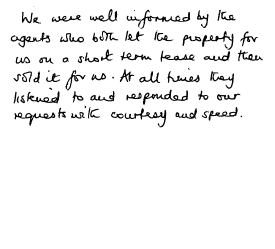 We were well informed by the
agents who both let the property for
us on a short term lease and then
sold it for us. At all times they
listened to and responded to our
requests with courtesy and speed.